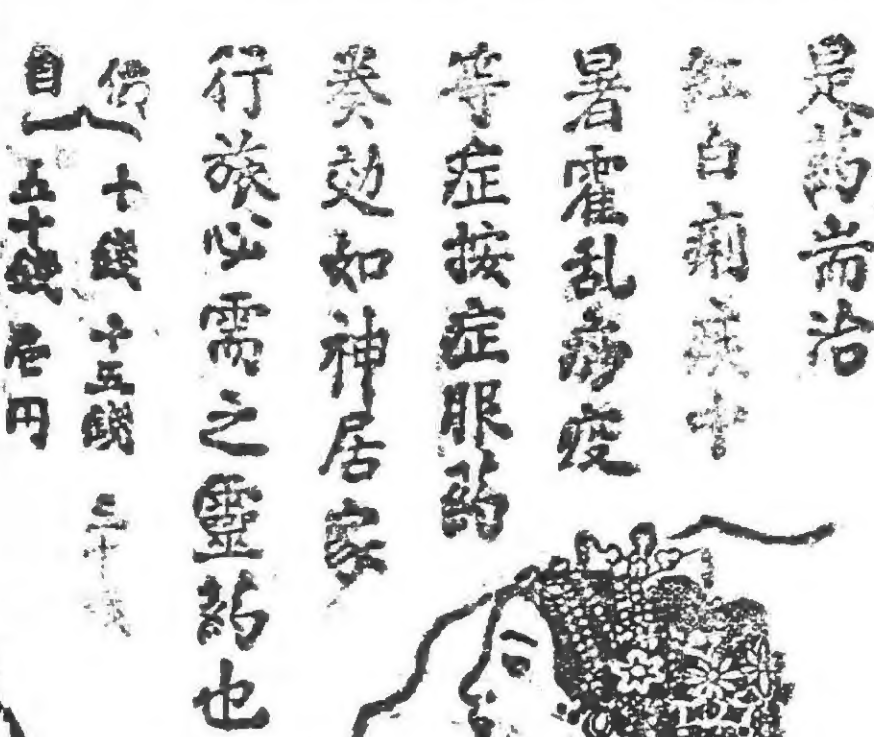 是药耑治
紅白痢疾中
暑霍乱痧疫
等症按症服药
奏効如神居家
行旅必需之靈药也
價 十錢 十五錢 三十錢
目 五十錢 壱円